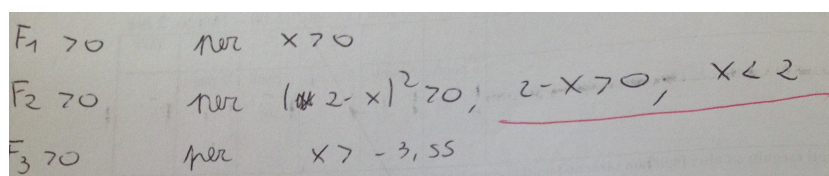 F₁ >0 per x>0
F₂ >0 per (2-x)² >0; 2-x>0; x<2
F₃ >0 per x> -3,55